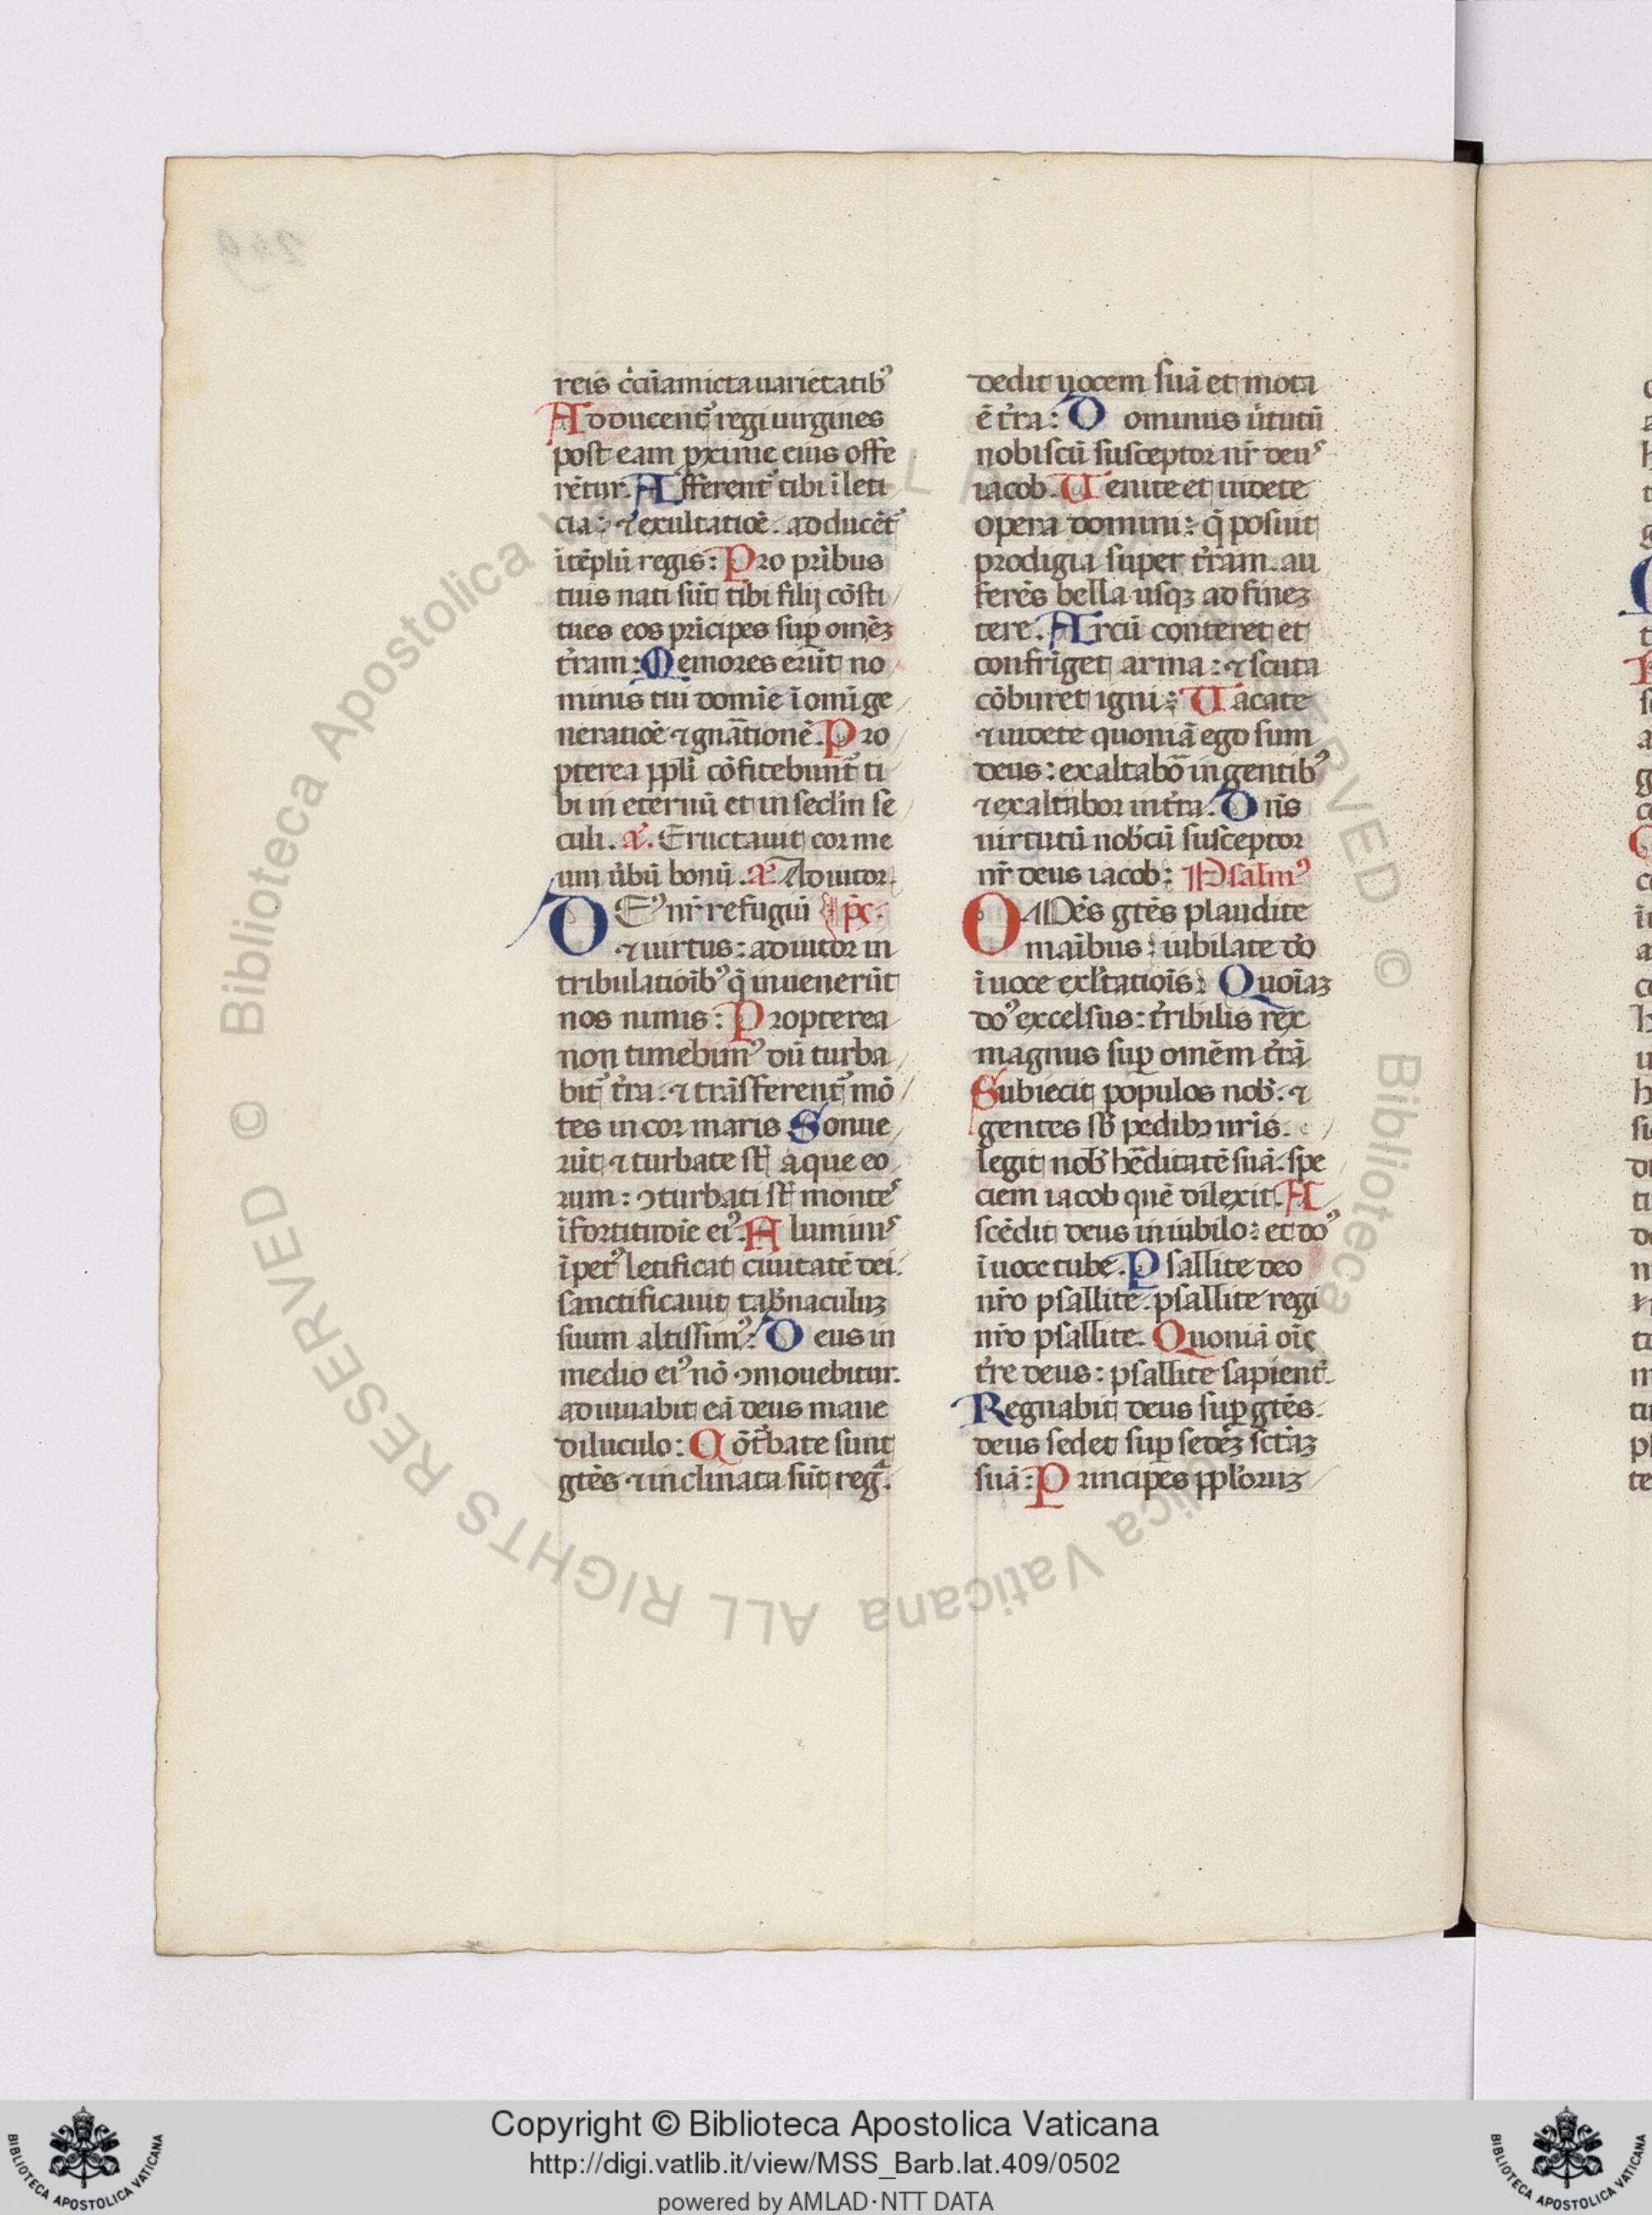 reis c̄cūamicta uarietatibꝰ
Adducent᷑ regi uirgines
post eam ꝓxime eius offe
rēt᷑ur. Afferent᷑ tibi ī leti
cia: ⁊ exultatiōe. adducēt᷑
ī tēplū regis: Pro pr̄ibus
tuis nati sūt tibi filij cōsti
tues eos prīcipes suꝑ omēꝫ
tr̄am: Memores erūt no
minis tui domīe ī omī ge
neratiōe ⁊ gnātionē. Pro
pterea ppl̄i cōfitebunt᷑ ti
bi in eternū et in secl̄m se
culi. a᷑. Eructauit cor me
um ūbū bonū. a᷑ Adiutor
DEꝰ nr̄ refugiū p̄s.
⁊ uirtus: adiutor in
tribulatioībꝰ q̄ inuenerūt
nos nimis: Propterea
non timebimꝰ dū turba
bit᷑ tr̄a: ⁊ trāsferent᷑ mō
tes in cor maris Sonue
rūt ⁊ turbate st̄ aque eo
rum: ꝯturbati st̄ montes
ī fortitudīe eiꝰ. A luminis
īpetꝰ letificat ciuitatē dei.
sanctificauit tab̄naculuꝫ
suum altissimꝰ. Deus in
medio eiꝰ nō ꝯmouebitur.
adiuuabit eā deus mane
diluculo: Cōt̄bate sunt
gtēs ⁊ inclinata sūt regᷓ.
dedit uocem suā et mota
ē tr̄a: Dominus ūtutū
nobiscū susceptor nr̄ deus
iacob. Uenite et uidete
opera domini: q̄ posuit
prodigia super tr̄am. au
ferēs bella usqꝫ ad fineꝫ
tere. Arcū conteret et
confrīget arma: ⁊ scuta
cōburet igni: Uacate
⁊ uidete quoniā ego sum
deus: exaltabor̄ in gentibꝰ
⁊ exaltabor in tr̄a. Dn̄s
uirtutū nob̄cū susceptor
nr̄ deus iacob: Psalmꝰ
OMēs gtēs plaudite
manībus: iubilate dō
ī uoce exl̄tatiōis: Quoīaꝫ
dōꝰ excelsus: tr̄ribilis rex
magnus suꝑ omēm tr̄ā
Subiecit populos nob̄. ⁊
gentes sb̄ pedibꝫ nr̄is. e
legit nob̄ hēditatē suā. spe
ciem iacob quē dilexit. A
scēdit deus in iubilo: et dōꝰ
ī uoce tube. Psallite deo
nr̄o psallite. psallite regi
nr̄o psallite. Quoniā oīs
tr̄re deus: psallite sapient᷑.
Regnabit deus suꝑ gtēs.
deus sedet suꝑ sedēꝫ sctāꝫ
suā: Principes ppl̄oruꝫ
© Biblioteca Apostolica Vaticana ALL RIGHTS RESERVED
Copyright © Biblioteca Apostolica Vaticana
http://digi.vatlib.it/view/MSS_Barb.lat.409/0502
powered by AMLAD·NTT DATA
BIBLIOTECA APOSTOLICA VATICANA
BIBLIOTECA APOSTOLICA VATICANA